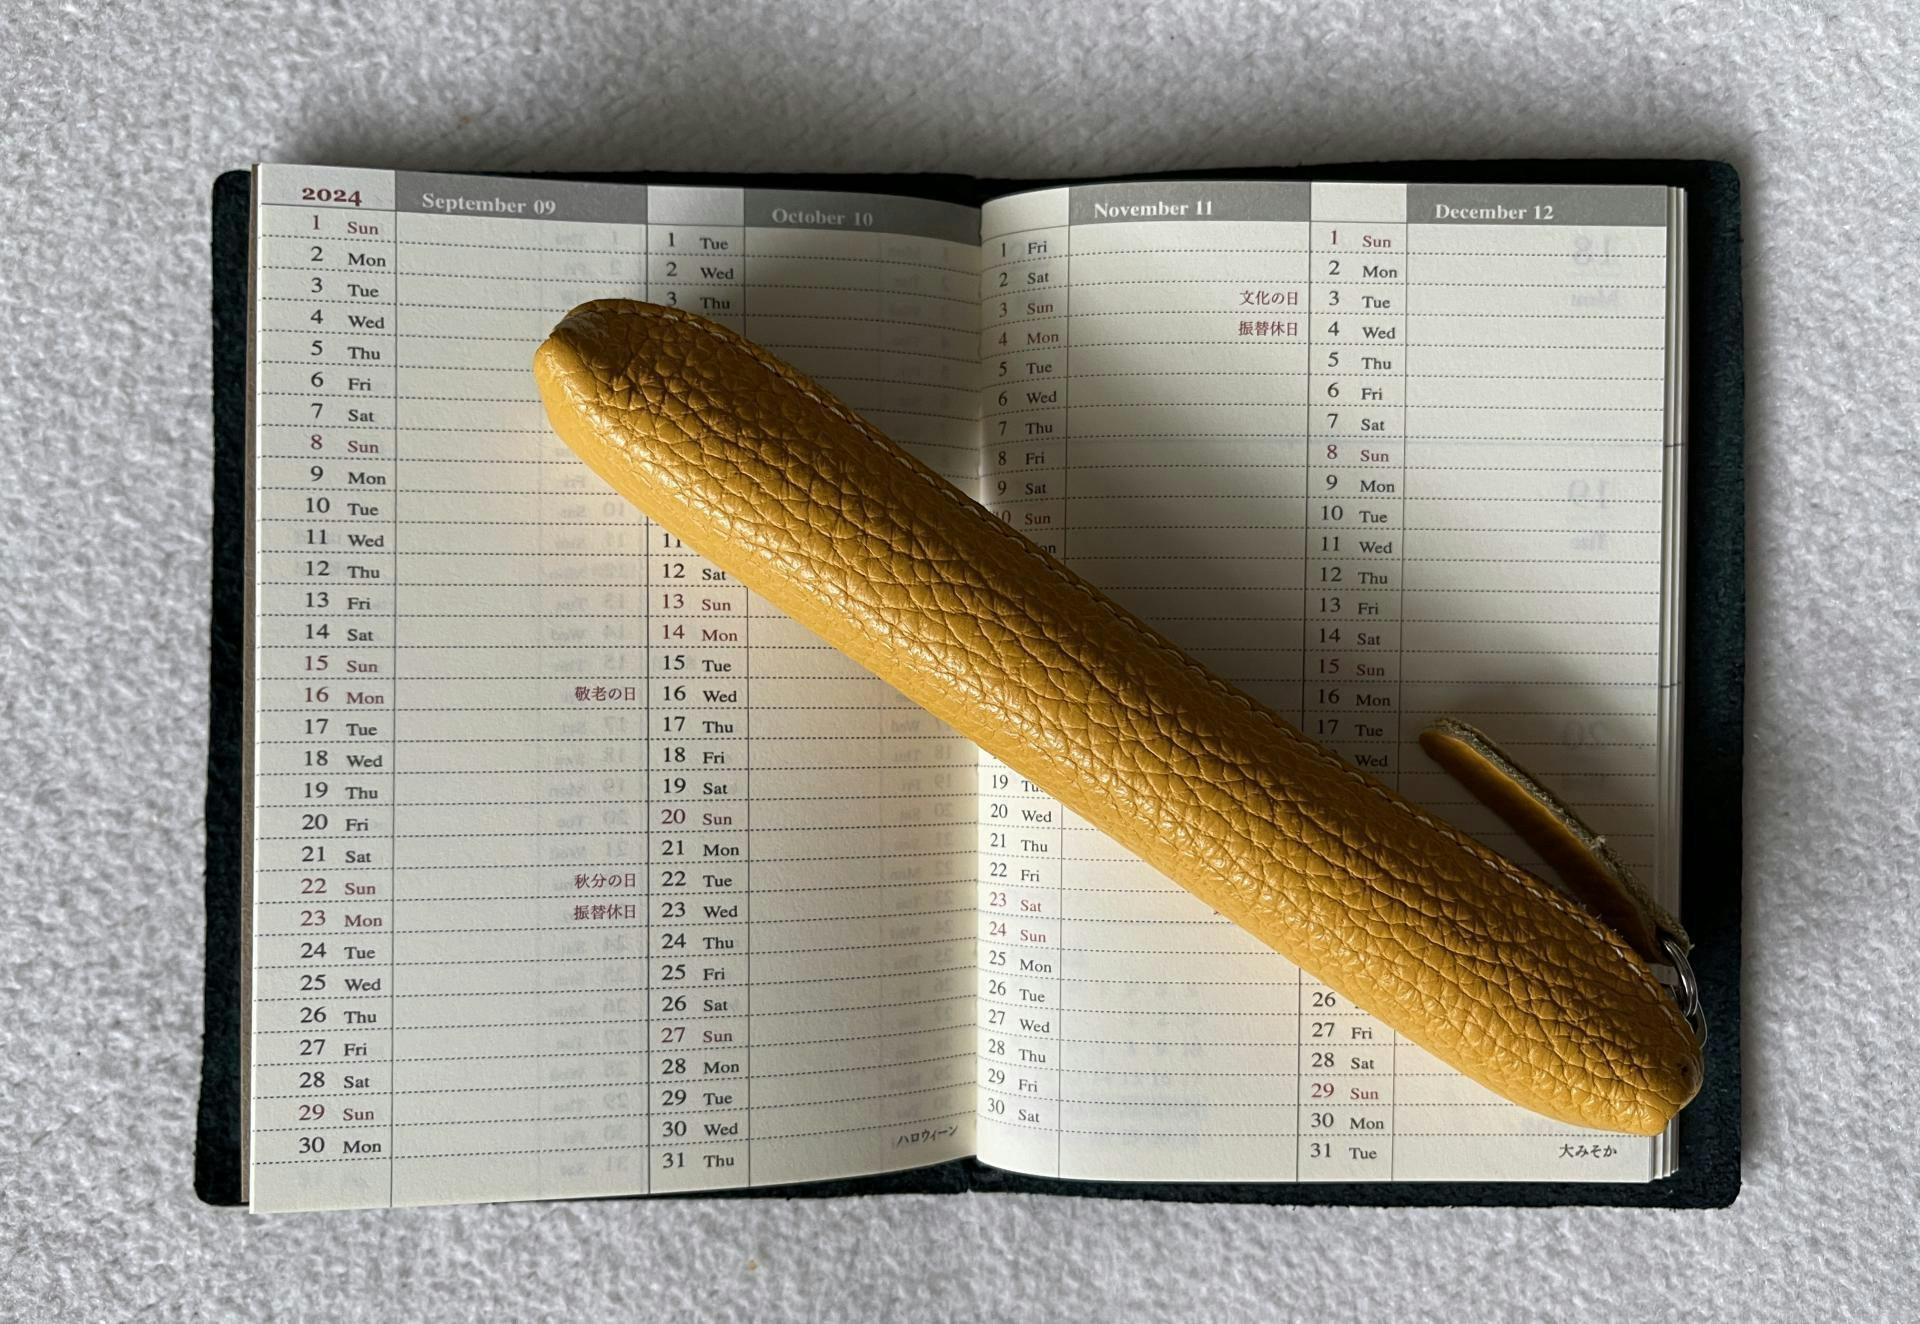 2024 September 09
1 Sun
2 Mon
3 Tue
4 Wed
5 Thu
6 Fri
7 Sat
8 Sun
9 Mon
10 Tue
11 Wed
12 Thu
13 Fri
14 Sat
15 Sun
16 Mon 敬老の日
17 Tue
18 Wed
19 Thu
20 Fri
21 Sat
22 Sun 秋分の日
23 Mon 振替休日
24 Tue
25 Wed
26 Thu
27 Fri
28 Sat
29 Sun
30 Mon
October 10
1 Tue
2 Wed
3 Thu
11
12 Sat
13 Sun
14 Mon
15 Tue
16 Wed
17 Thu
18 Fri
19 Sat
20 Sun
21 Mon
22 Tue
23 Wed
24 Thu
25 Fri
26 Sat
27 Sun
28 Mon
29 Tue
30 Wed
31 Thu ハロウィーン
November 11
1 Fri
2 Sat
3 Sun 文化の日
4 Mon 振替休日
5 Tue
6 Wed
7 Thu
8 Fri
9 Sat
10 Sun
19
20 Wed
21 Thu
22 Fri
23 Sat
24 Sun
25 Mon
26 Tue
27 Wed
28 Thu
29 Fri
30 Sat
December 12
1 Sun
2 Mon
3 Tue
4 Wed
5 Thu
6 Fri
7 Sat
8 Sun
9 Mon
10 Tue
11 Wed
12 Thu
13 Fri
14 Sat
15 Sun
16 Mon
17 Tue
Wed
26
27 Fri
28 Sat
29 Sun
30 Mon
31 Tue 大みそか